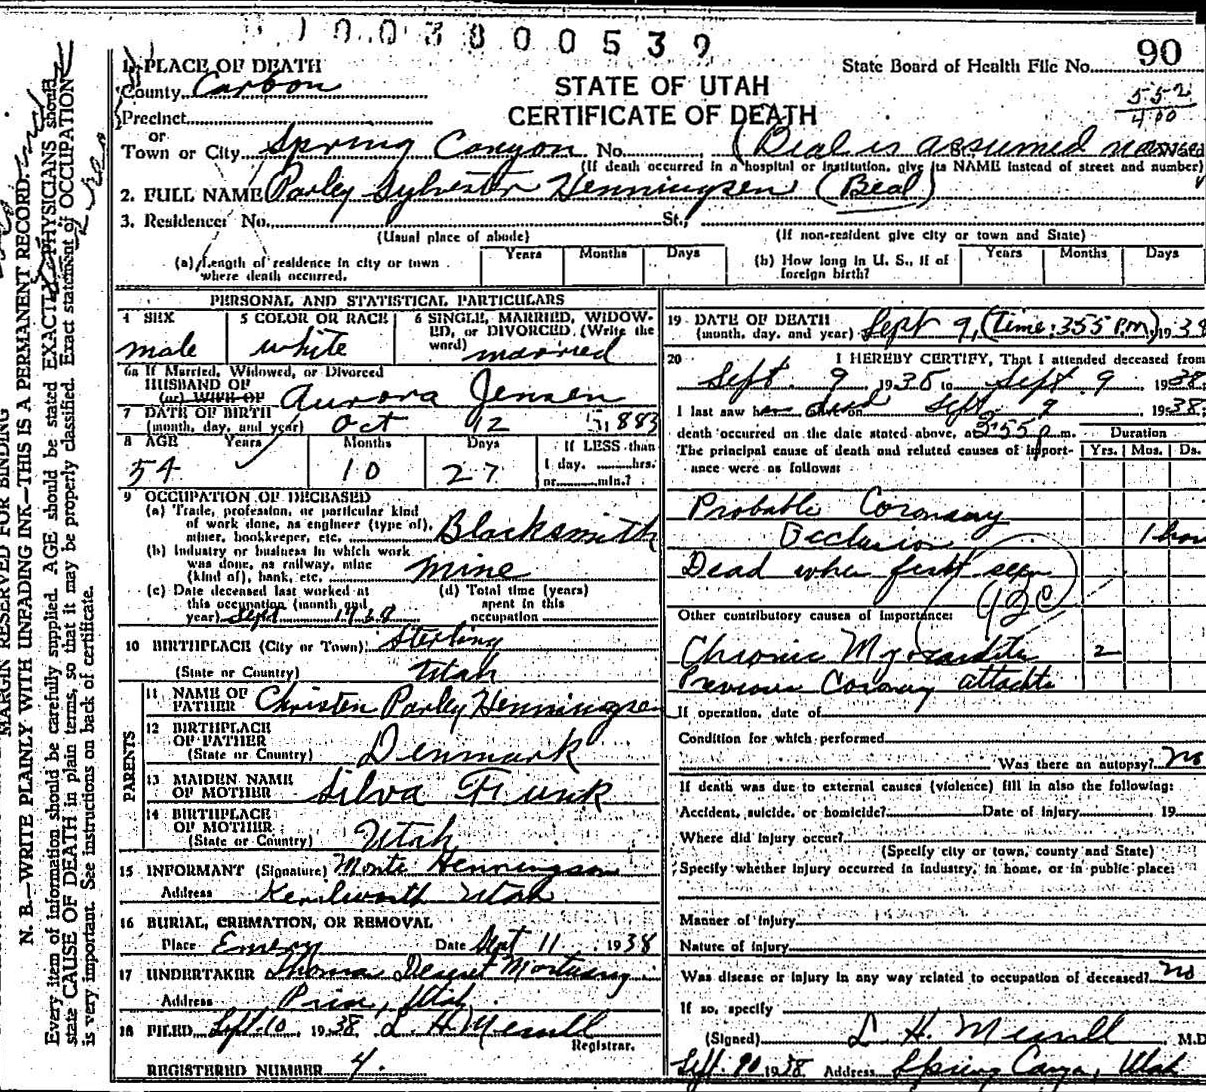 1003800539
90
State Board of Health File No.
552
400
STATE OF UTAH
CERTIFICATE OF DEATH
1. PLACE OF DEATH
County Carbon
Precinct
or
Town or City Spring Canyon No. (Beal is assumed name
(If death occurred in a hospital or institution, give its NAME instead of street and number)
2. FULL NAME Parley Sylvester Henningsen (Beal)
3. Residence: No. St.,
(Usual place of abode) (If non-resident give city or town and State)
(a) Length of residence in city or town where death occurred. Years Months Days
(b) How long in U. S., if of foreign birth? Years Months Days
PERSONAL AND STATISTICAL PARTICULARS
4 SEX male
5 COLOR OR RACE white
6 SINGLE, MARRIED, WIDOWED, or DIVORCED. (Write the word) married
6a If Married, Widowed, or Divorced
HUSBAND OF
(or) WIFE OF Aurora Jensen
7 DATE OF BIRTH
(month, day, and year) Oct 12 1883
8 AGE Years Months Days If LESS than
54 10 27 1 day, hrs.
or min.?
9 OCCUPATION OF DECEASED
(a) Trade, profession, or particular kind
of work done, as engineer (type of),
miner, bookkeeper, etc. Blacksmith
(b) Industry or business in which work
was done, as railway, mine
(kind of), bank, etc. mine
(c) Date deceased last worked at
this occupation (month and
year) Sept 1938
(d) Total time (years)
spent in this
occupation
10 BIRTHPLACE (City or Town) Sterling
(State or Country) Utah
PARENTS
11 NAME OF
FATHER Christen Parley Henningsen
12 BIRTHPLACE
OF FATHER
(State or Country) Denmark
13 MAIDEN NAME
OF MOTHER Silva Funk
14 BIRTHPLACE
OF MOTHER
(State or Country) Utah
15 INFORMANT (Signature) Monte Henningson
Address Kenilworth Utah
16 BURIAL, CREMATION, OR REMOVAL
Place Emery Date Sept 11 1938
17 UNDERTAKER Deseret Mortuary
Address Price, Utah
18 FILED Sept 10 1938 L. H. Merrill
Registrar.
REGISTERED NUMBER 4.
19 DATE OF DEATH
(month, day, and year) Sept 9, (Time: 355 P.m.) 1938
20 I HEREBY CERTIFY, That I attended deceased from
Sept. 9 1938 to Sept 9 1938;
I last saw dead on Sept 9 1938;
death occurred on the date stated above, at 3:55 p.m. Duration
The principal cause of death and related causes of importance were as follows: Yrs. Mos. Ds.
Probable Coronary
Occlusion 1 hour
Dead when first seen
Other contributory causes of importance:
Chronic Myocarditis 2
Previous Coronary attacks
If operation, date of
Condition for which performed
Was there an autopsy? no
If death was due to external causes (violence) fill in also the following:
Accident, suicide, or homicide? Date of injury 19
Where did injury occur?
(Specify city or town, county and State)
Specify whether injury occurred in industry, in home, or in public place:
Manner of injury
Nature of injury
Was disease or injury in any way related to occupation of deceased? no
If so, specify
(Signed) L H. Merrill M.D
Sept. 1938 Address Spring Canyon, Utah
MARGIN RESERVED FOR BINDING
N. B.—WRITE PLAINLY WITH UNFADING INK—THIS IS A PERMANENT RECORD.
Every item of information should be carefully supplied. AGE should be stated EXACTLY. PHYSICIANS should
state CAUSE OF DEATH in plain terms, so that it may be properly classified. Exact statement of OCCUPATION
is very important. See instructions on back of certificate.